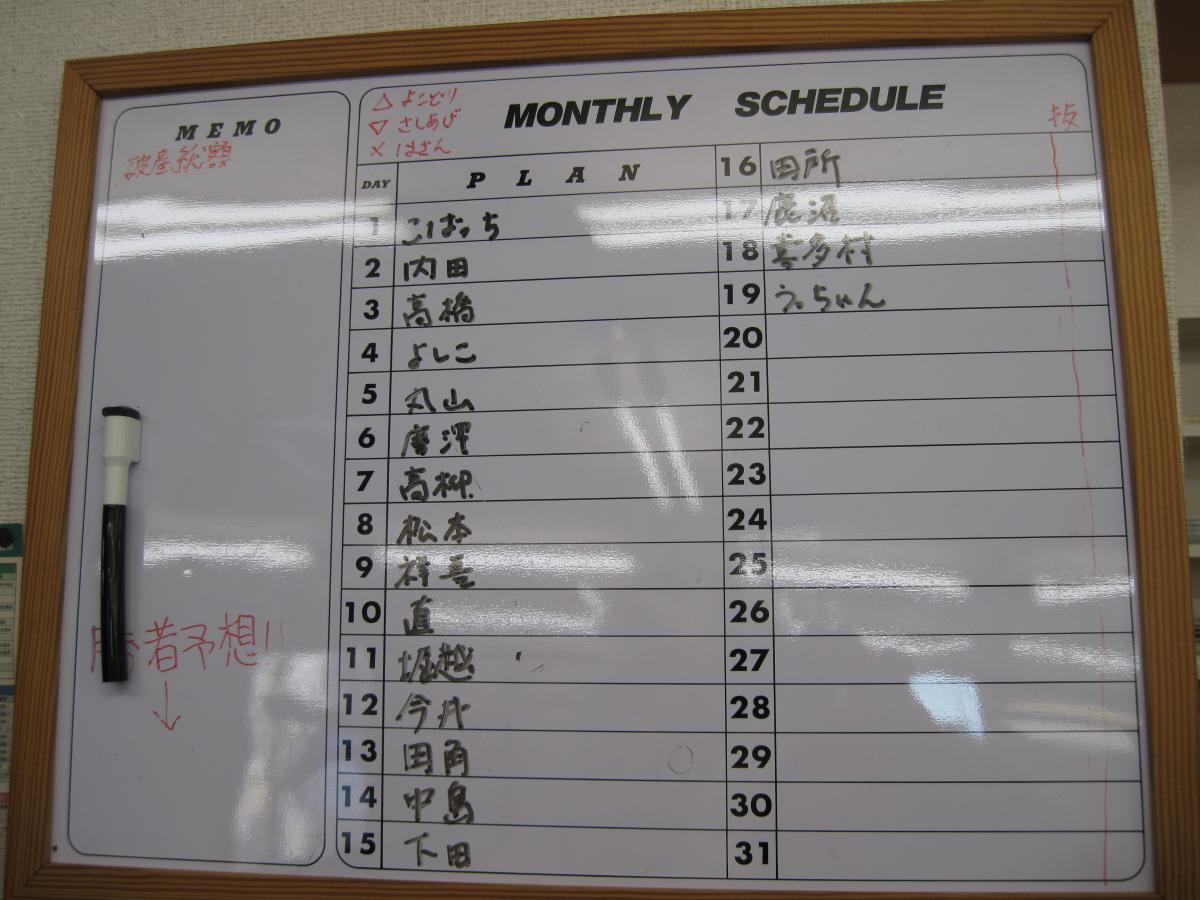 MEMO
破産総額
勝者予想!!
↓
△ よこどり
▽ さしあげ
× はさん
MONTHLY SCHEDULE
抜
DAY PLAN
1 こばっち
2 内田
3 高橋
4 よしこ
5 丸山
6 唐澤
7 高柳
8 松本
9 祥吾
10 直
11 堀越
12 今井
13 田角
14 中島
15 下田
16 田所
17 鹿沼
18 喜多村
19 うっちゃん
20
21
22
23
24
25
26
27
28
29
30
31